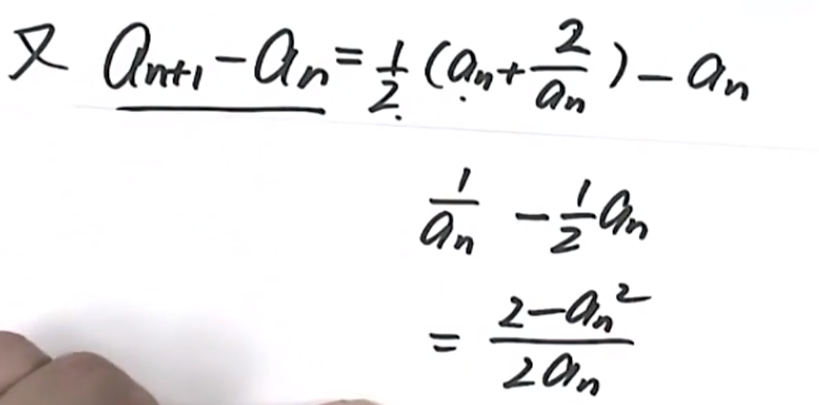 又 aₙ₊₁ - aₙ = 1/2 (aₙ + 2/aₙ) - aₙ
1/aₙ - 1/2 aₙ
= (2 - aₙ²)/(2aₙ)